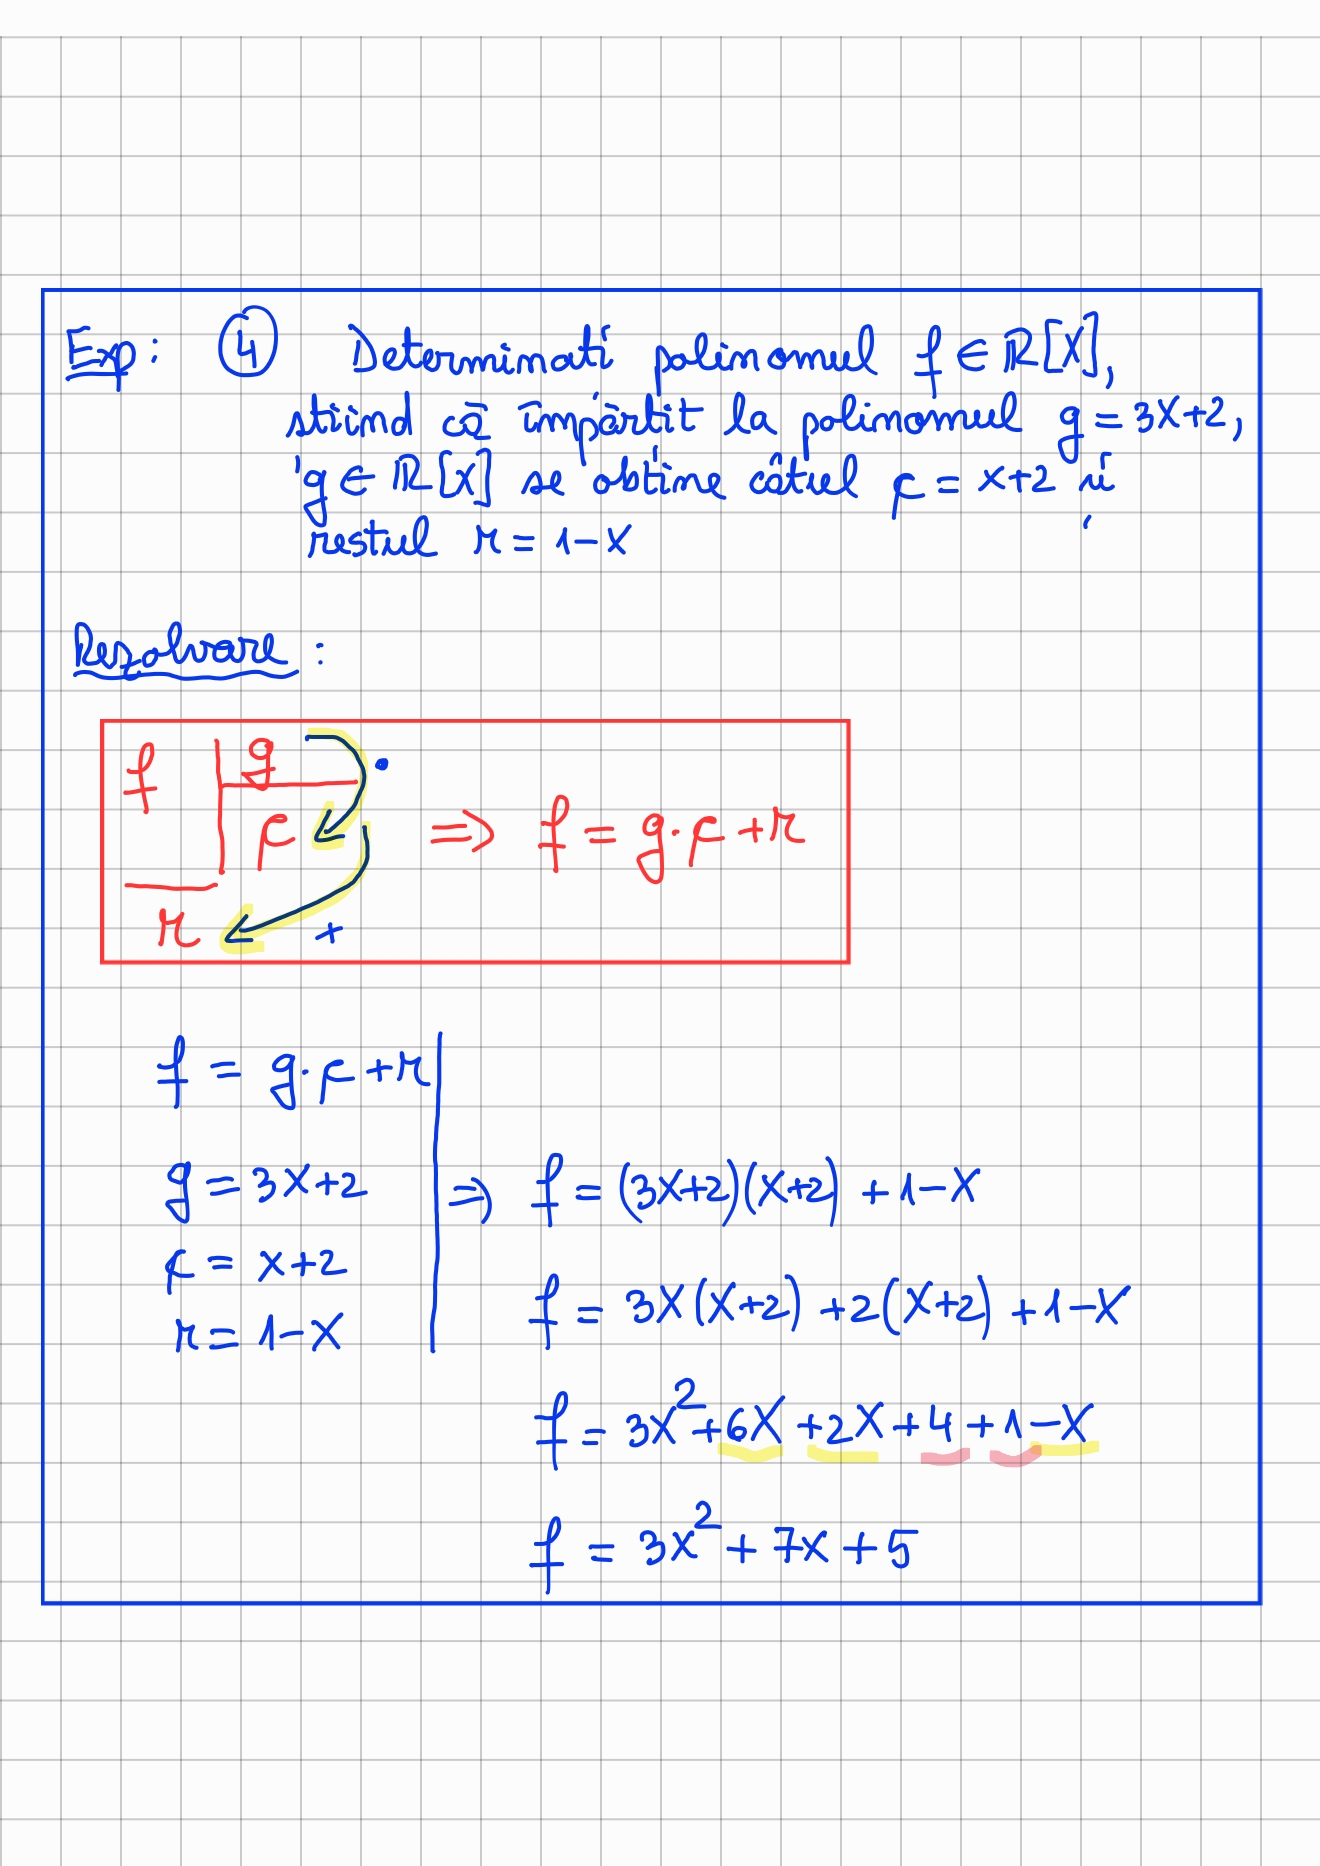 Exp: ④ Determinați polinomul f ∈ ℝ[X],
știind că împărțit la polinomul g = 3X+2,
g ∈ ℝ[X] se obține câtul c = x+2 și
restul r = 1-X
Rezolvare:
f g ·
c ⇒ f = g·c+r
r +
f = g·c+r
g = 3X+2 ⇒ f = (3X+2)(X+2) + 1-X
c = x+2
f = 3X(X+2) +2(X+2) +1-X
r = 1-X
f = 3X²+6X+2X+4+1-X
f = 3x²+7x+5